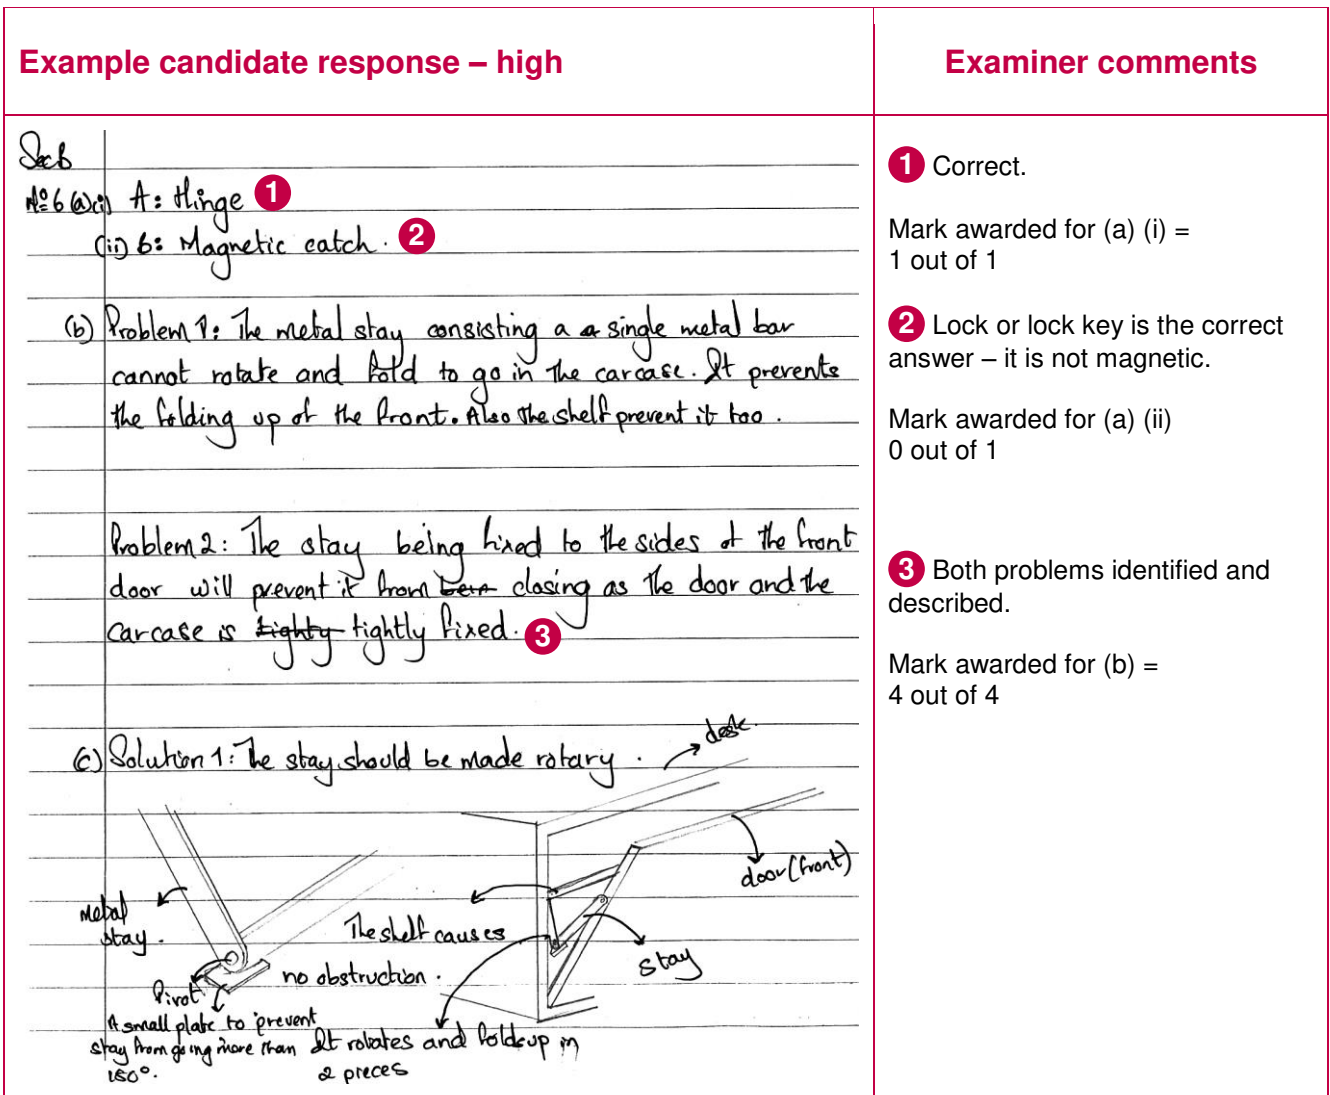 Example candidate response – high
Examiner comments
Sec b
No 6 (a)(i) A: Hinge 1
(ii) b: Magnetic catch. 2
(b) Problem 1: The metal stay consisting a a single metal bar
cannot rotate and fold to go in the carcase. It prevents
the folding up of the front. Also the shelf prevent it too.
Problem 2: The stay being fixed to the sides of the front
door will prevent it from closing as the door and the
carcase is tighty tightly fixed. 3
(c) Solution 1: The stay should be made rotary.
desk
door (front)
metal
stay.
The shelf causes
no obstruction.
stay
Pivot
A small plate to prevent
stay from going more than
180°.
It rotates and folds up in
2 pieces
1 Correct.
Mark awarded for (a) (i) =
1 out of 1
2 Lock or lock key is the correct
answer – it is not magnetic.
Mark awarded for (a) (ii)
0 out of 1
3 Both problems identified and
described.
Mark awarded for (b) =
4 out of 4